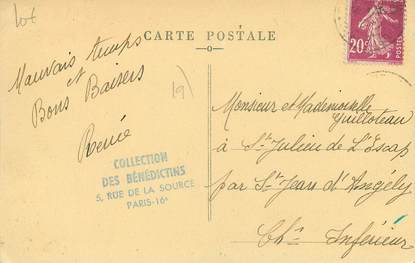 lot
CARTE POSTALE
20c
POSTES
Mauvais temps
et
Bons Baisers
Renée
19)
COLLECTION
DES BÉNÉDICTINS
5, RUE DE LA SOURCE
PARIS-16e
Monsieur et Mademoiselle
Guilloteau
à St Julien de L'Escap
par St Jean d'Angély
Chte Inférieur